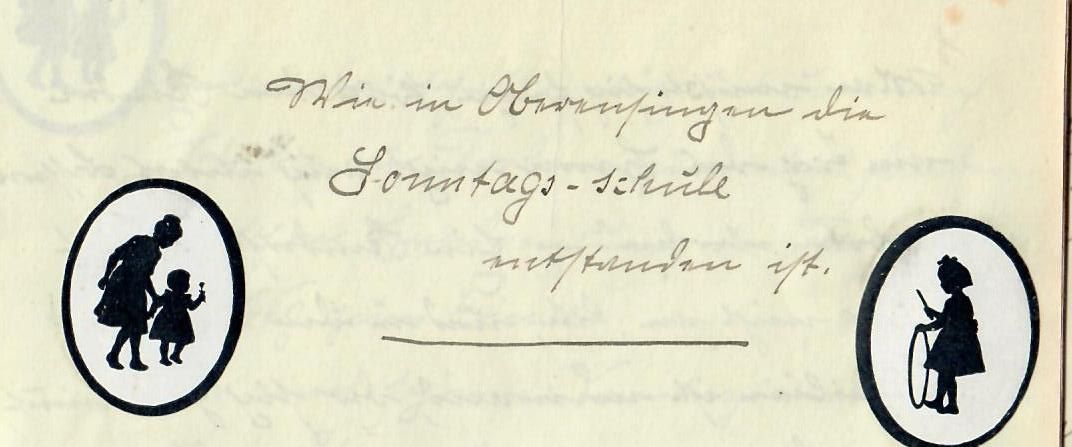 Wie in Oberensingen die
Sonntags-schule
entstanden ist.